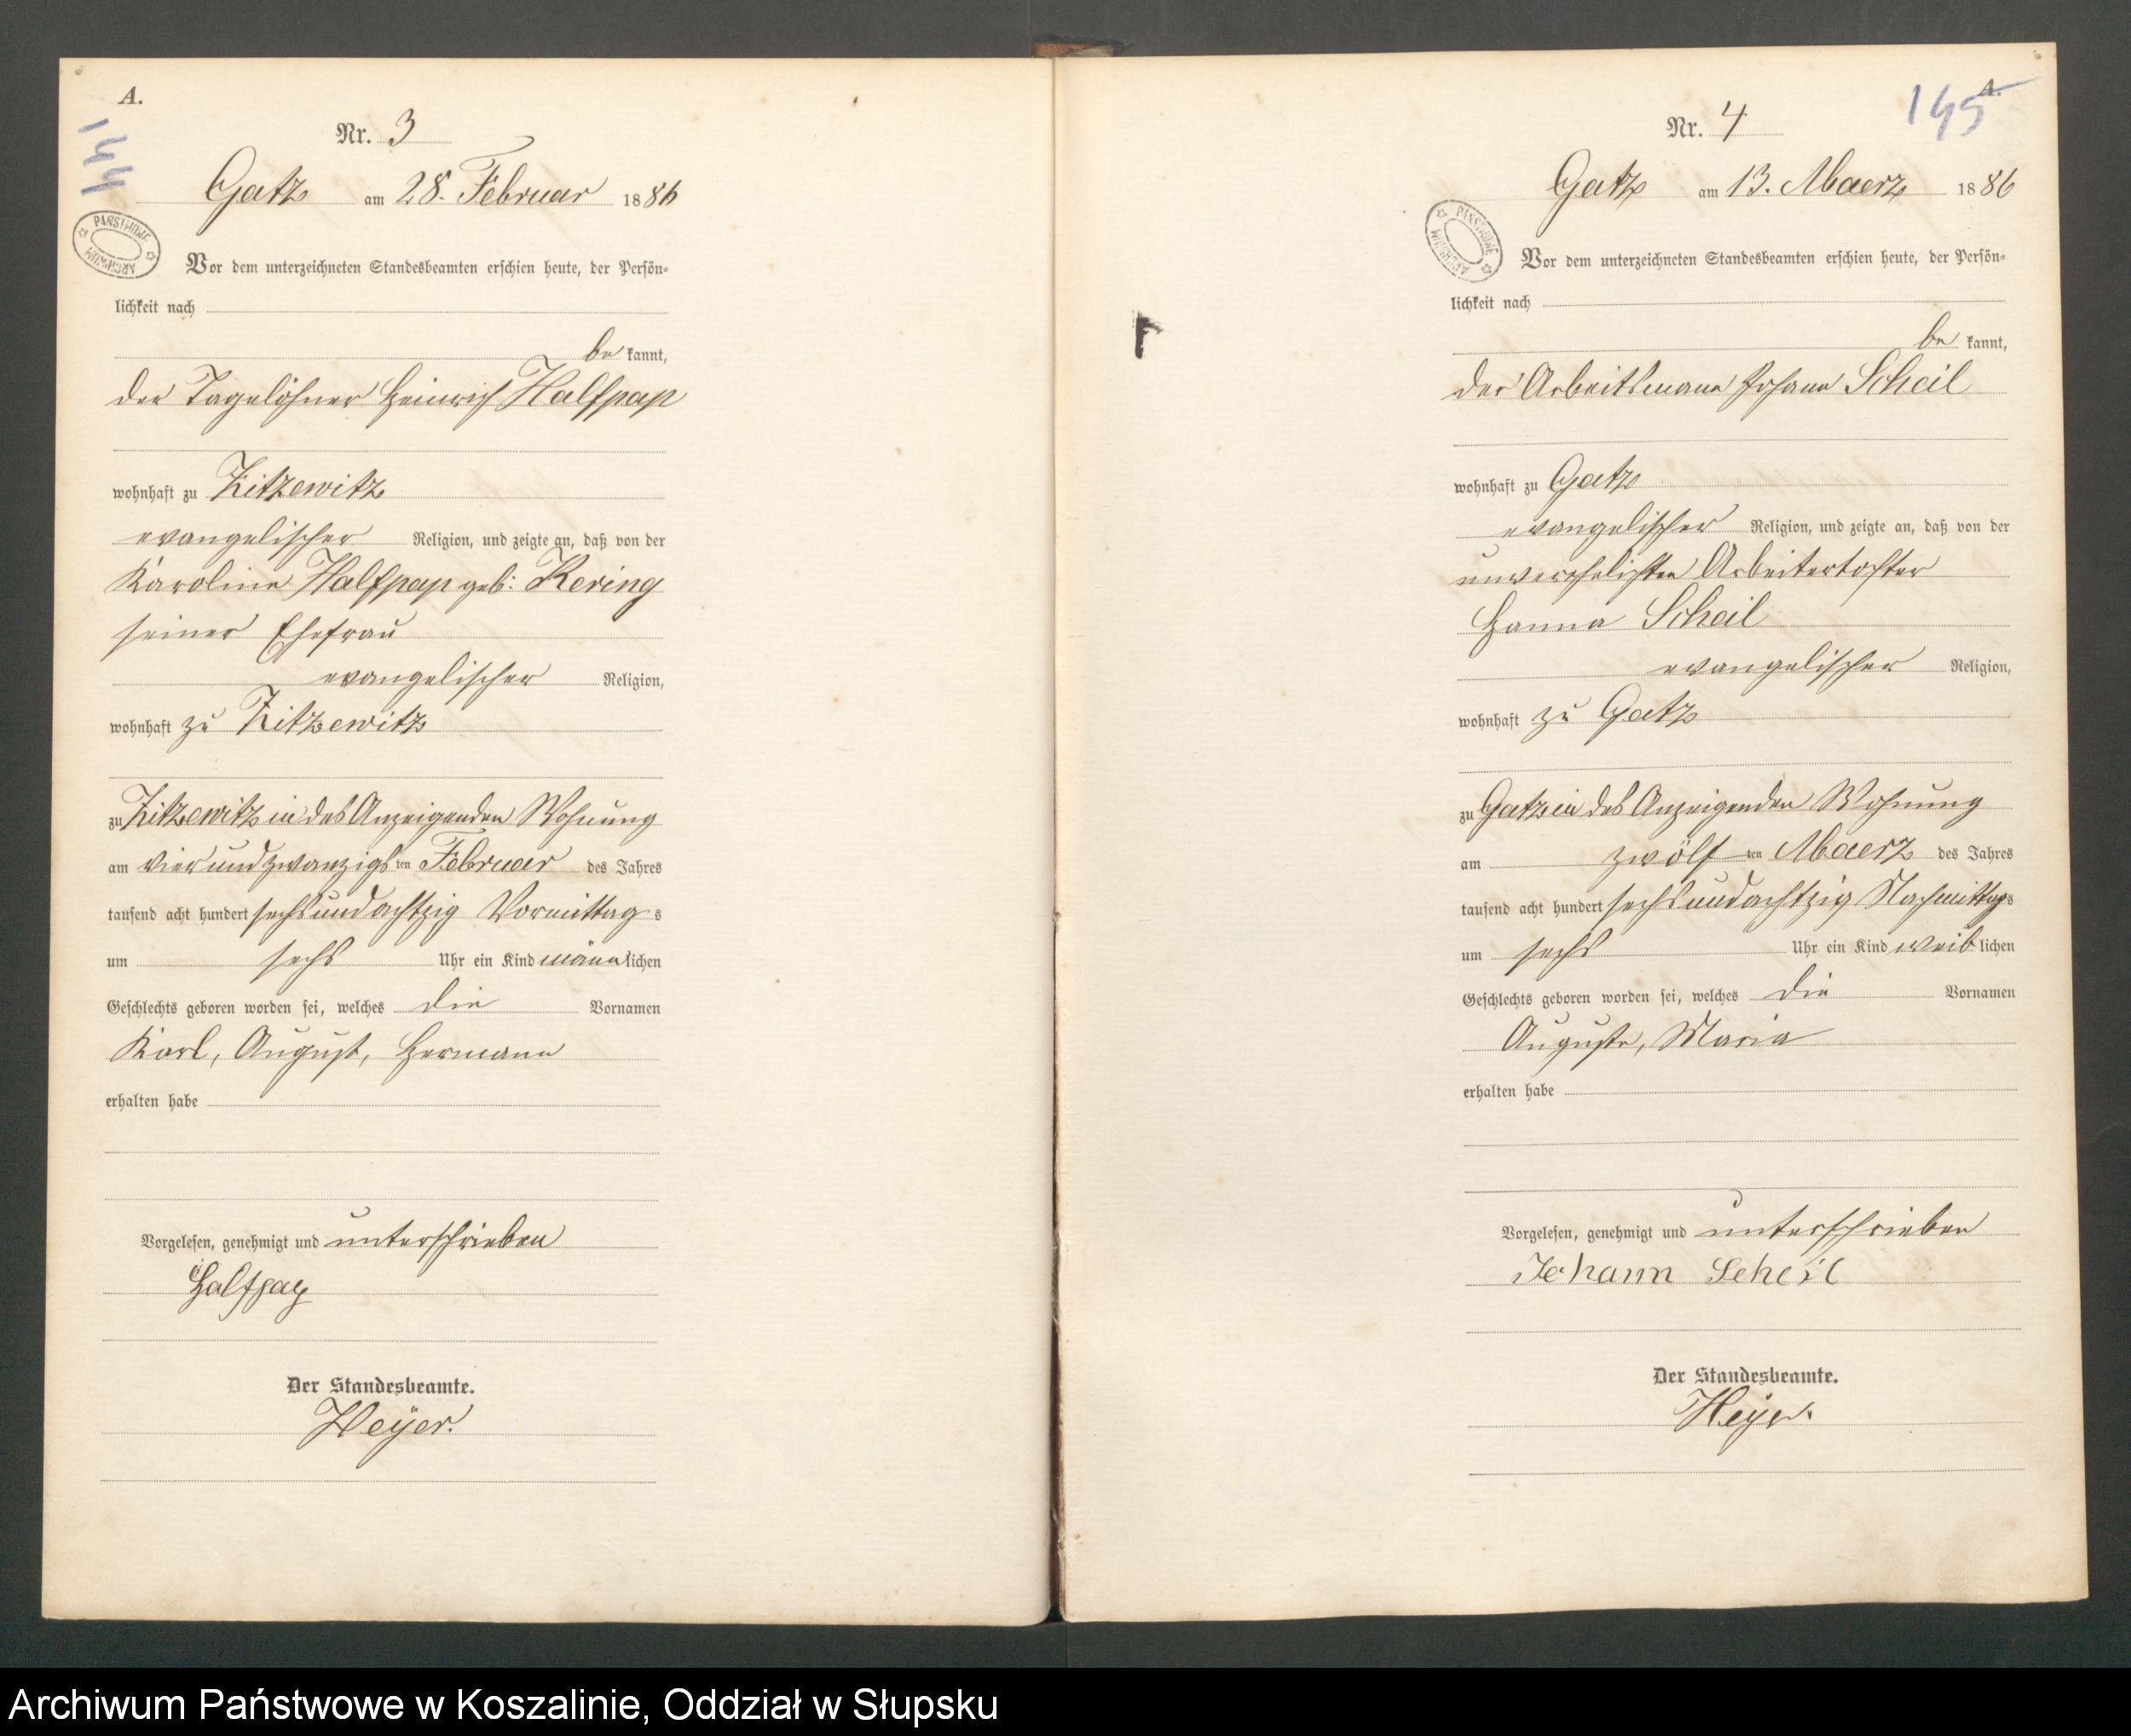 A.
144
Nr. 3
Gatz am 28. Februar 1886
PAŃSTWOWE ARCHIWUM
Vor dem unterzeichneten Standesbeamten erschien heute, der Persön-
lichkeit nach
be kannt,
der Tagelöhner Heinrich Halfpap
wohnhaft zu Zitzewitz
evangelischer Religion, und zeigte an, daß von der
Karoline Halfpap geb: Kering
seiner Ehefrau
evangelischer Religion,
wohnhaft zu Zitzewitz
zu Zitzewitz in des Anzeigenden Wohnung
am vierundzwanzigs ten Februar des Jahres
tausend acht hundert sechsundachtzig Vormittag s
um sechs Uhr ein Kind männ lichen
Geschlechts geboren worden sei, welches die Vornamen
Karl, August, Hermann
erhalten habe
Vorgelesen, genehmigt und unterschrieben
Halfpap
Der Standesbeamte.
Heyer.
A.
145
Nr. 4
Gatz am 13. Maerz 1886
PAŃSTWOWE ARCHIWUM
Vor dem unterzeichneten Standesbeamten erschien heute, der Persön-
lichkeit nach
be kannt,
der Arbeitsmann Johann Scheil
wohnhaft zu Gatz
evangelischer Religion, und zeigte an, daß von der
unverehelichten Arbeitertochter
Hanna Scheil
evangelischer Religion,
wohnhaft zu Gatz
zu Gatz in des Anzeigenden Wohnung
am zwölf ten Maerz des Jahres
tausend acht hundert sechsundachtzig Nachmittag s
um sechs Uhr ein Kind weib lichen
Geschlechts geboren worden sei, welches die Vornamen
Auguste, Maria
erhalten habe
Vorgelesen, genehmigt und unterschrieben
Johann Scheil
Der Standesbeamte.
Heyer.
Archiwum Państwowe w Koszalinie, Oddział w Słupsku